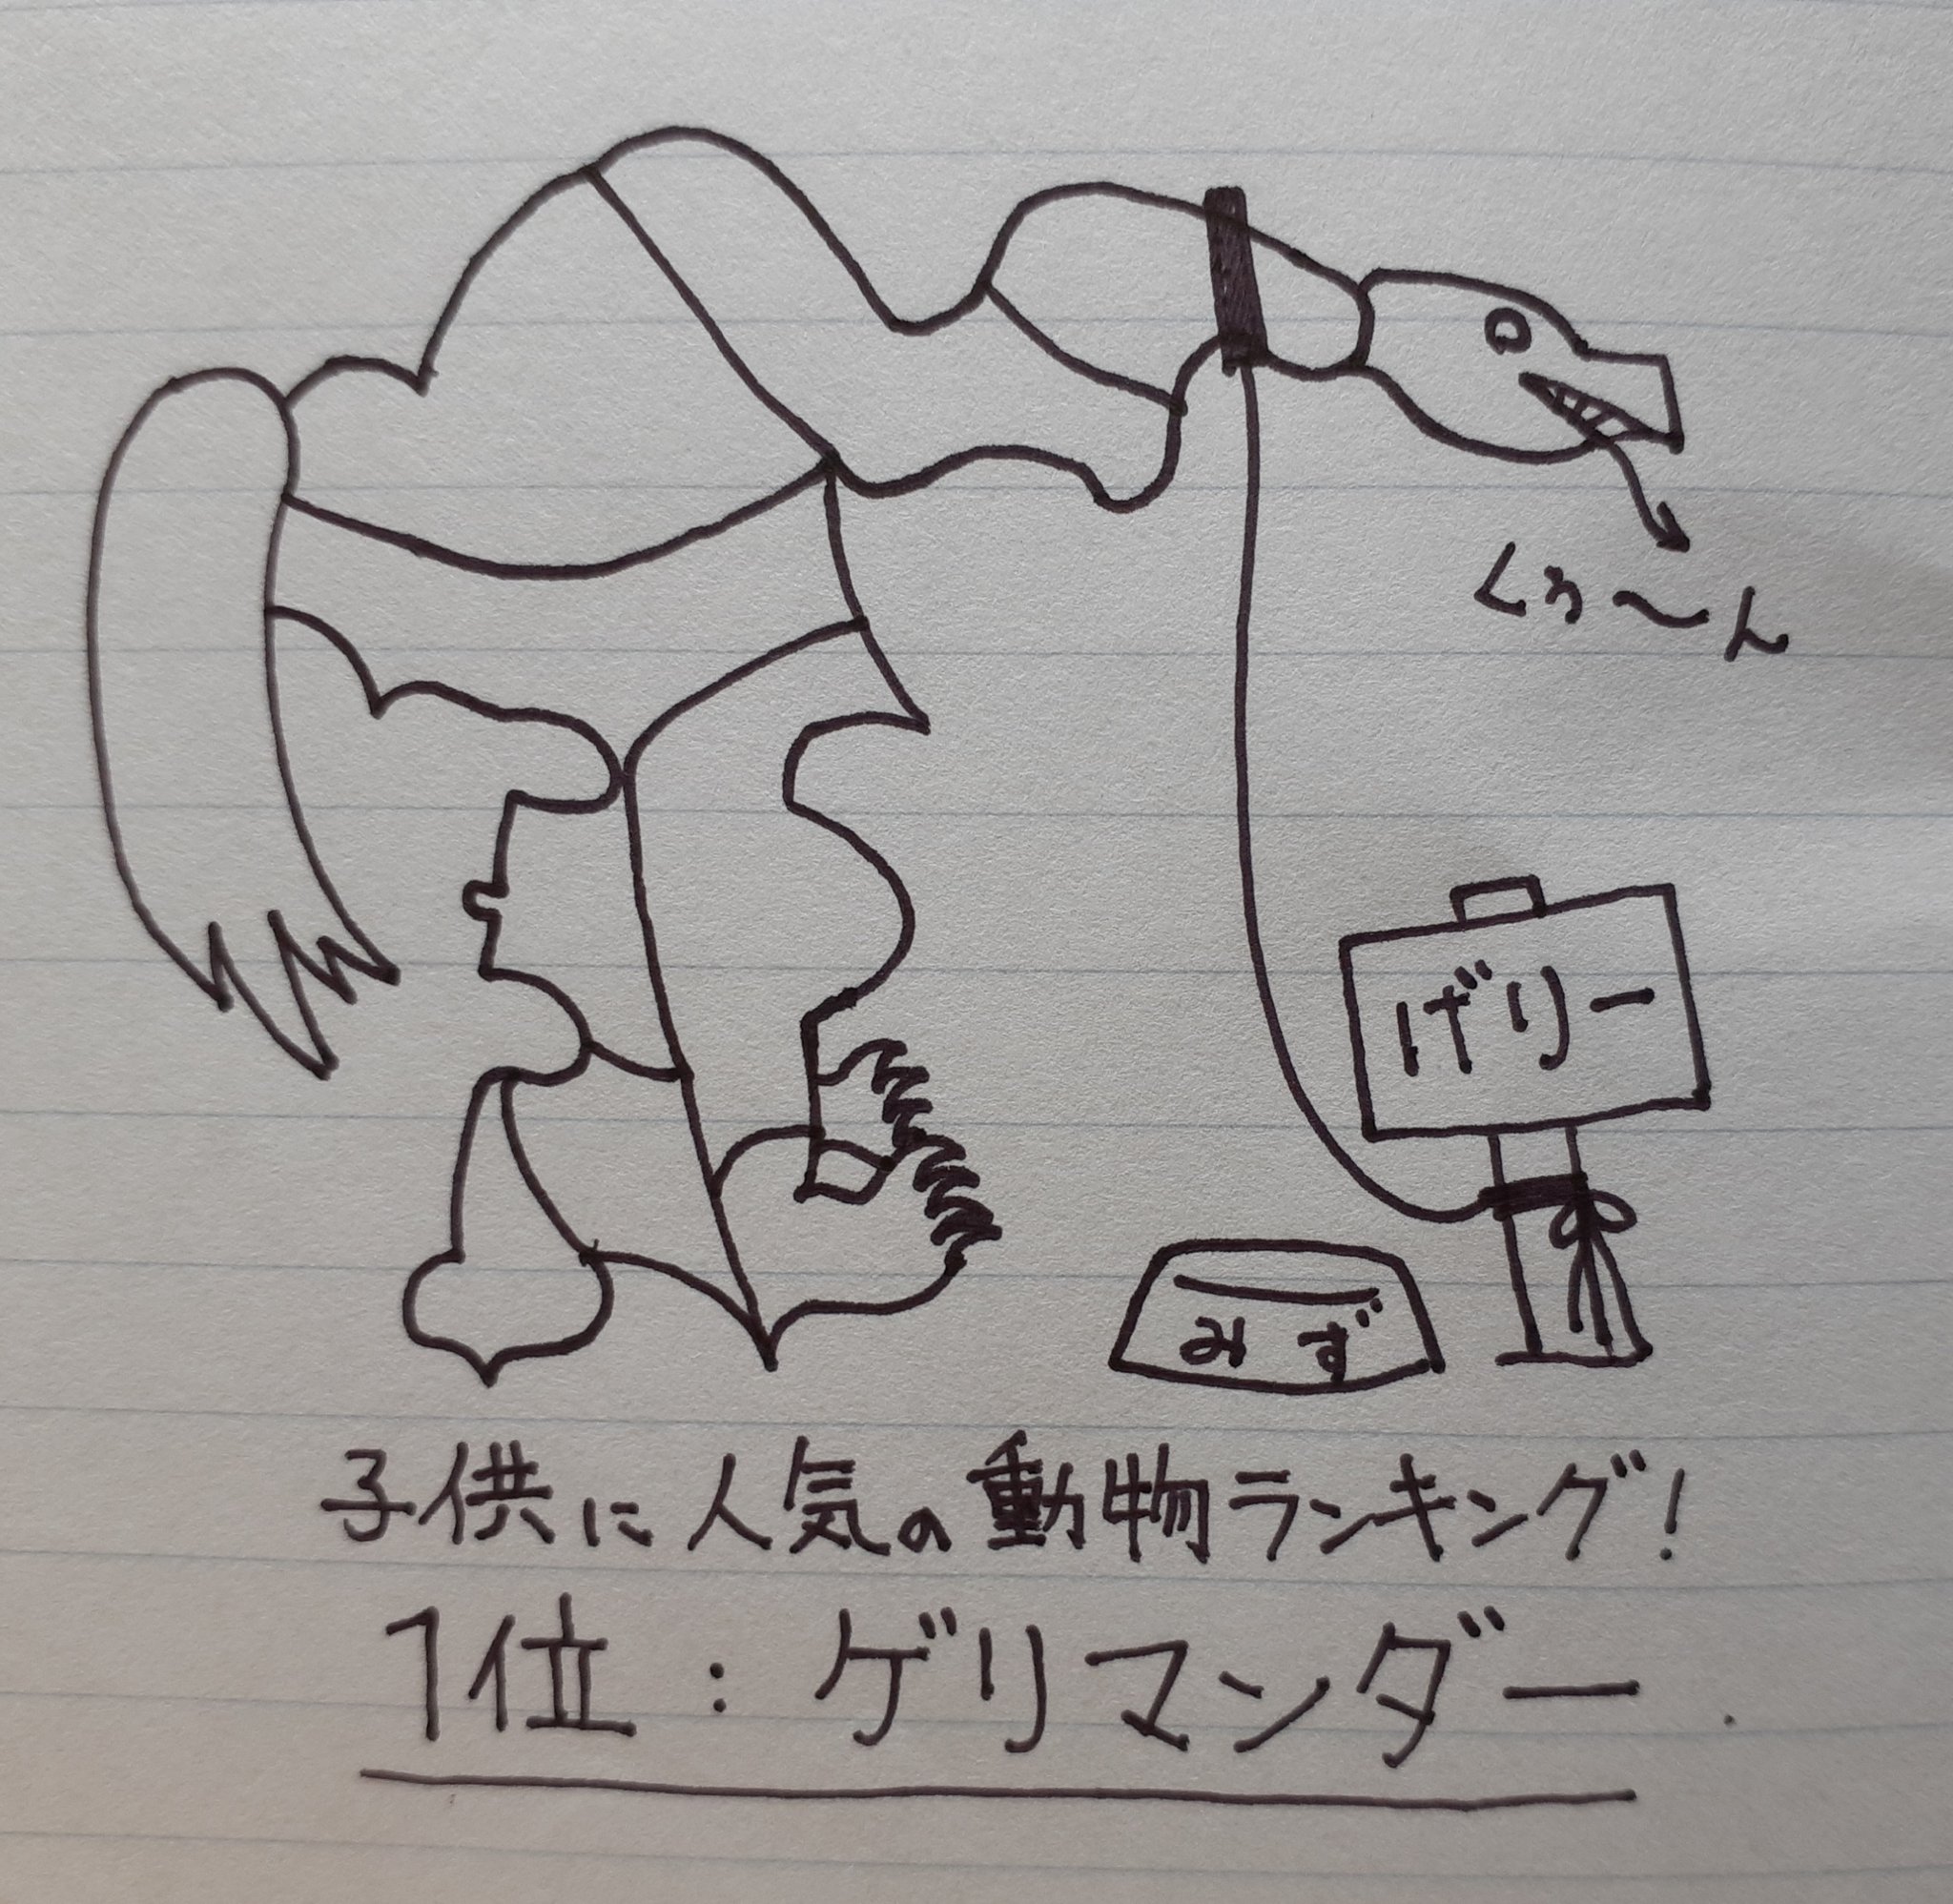 くぅ〜ん
げりー
みず
子供に人気の動物ランキング!
1位:ゲリマンダー